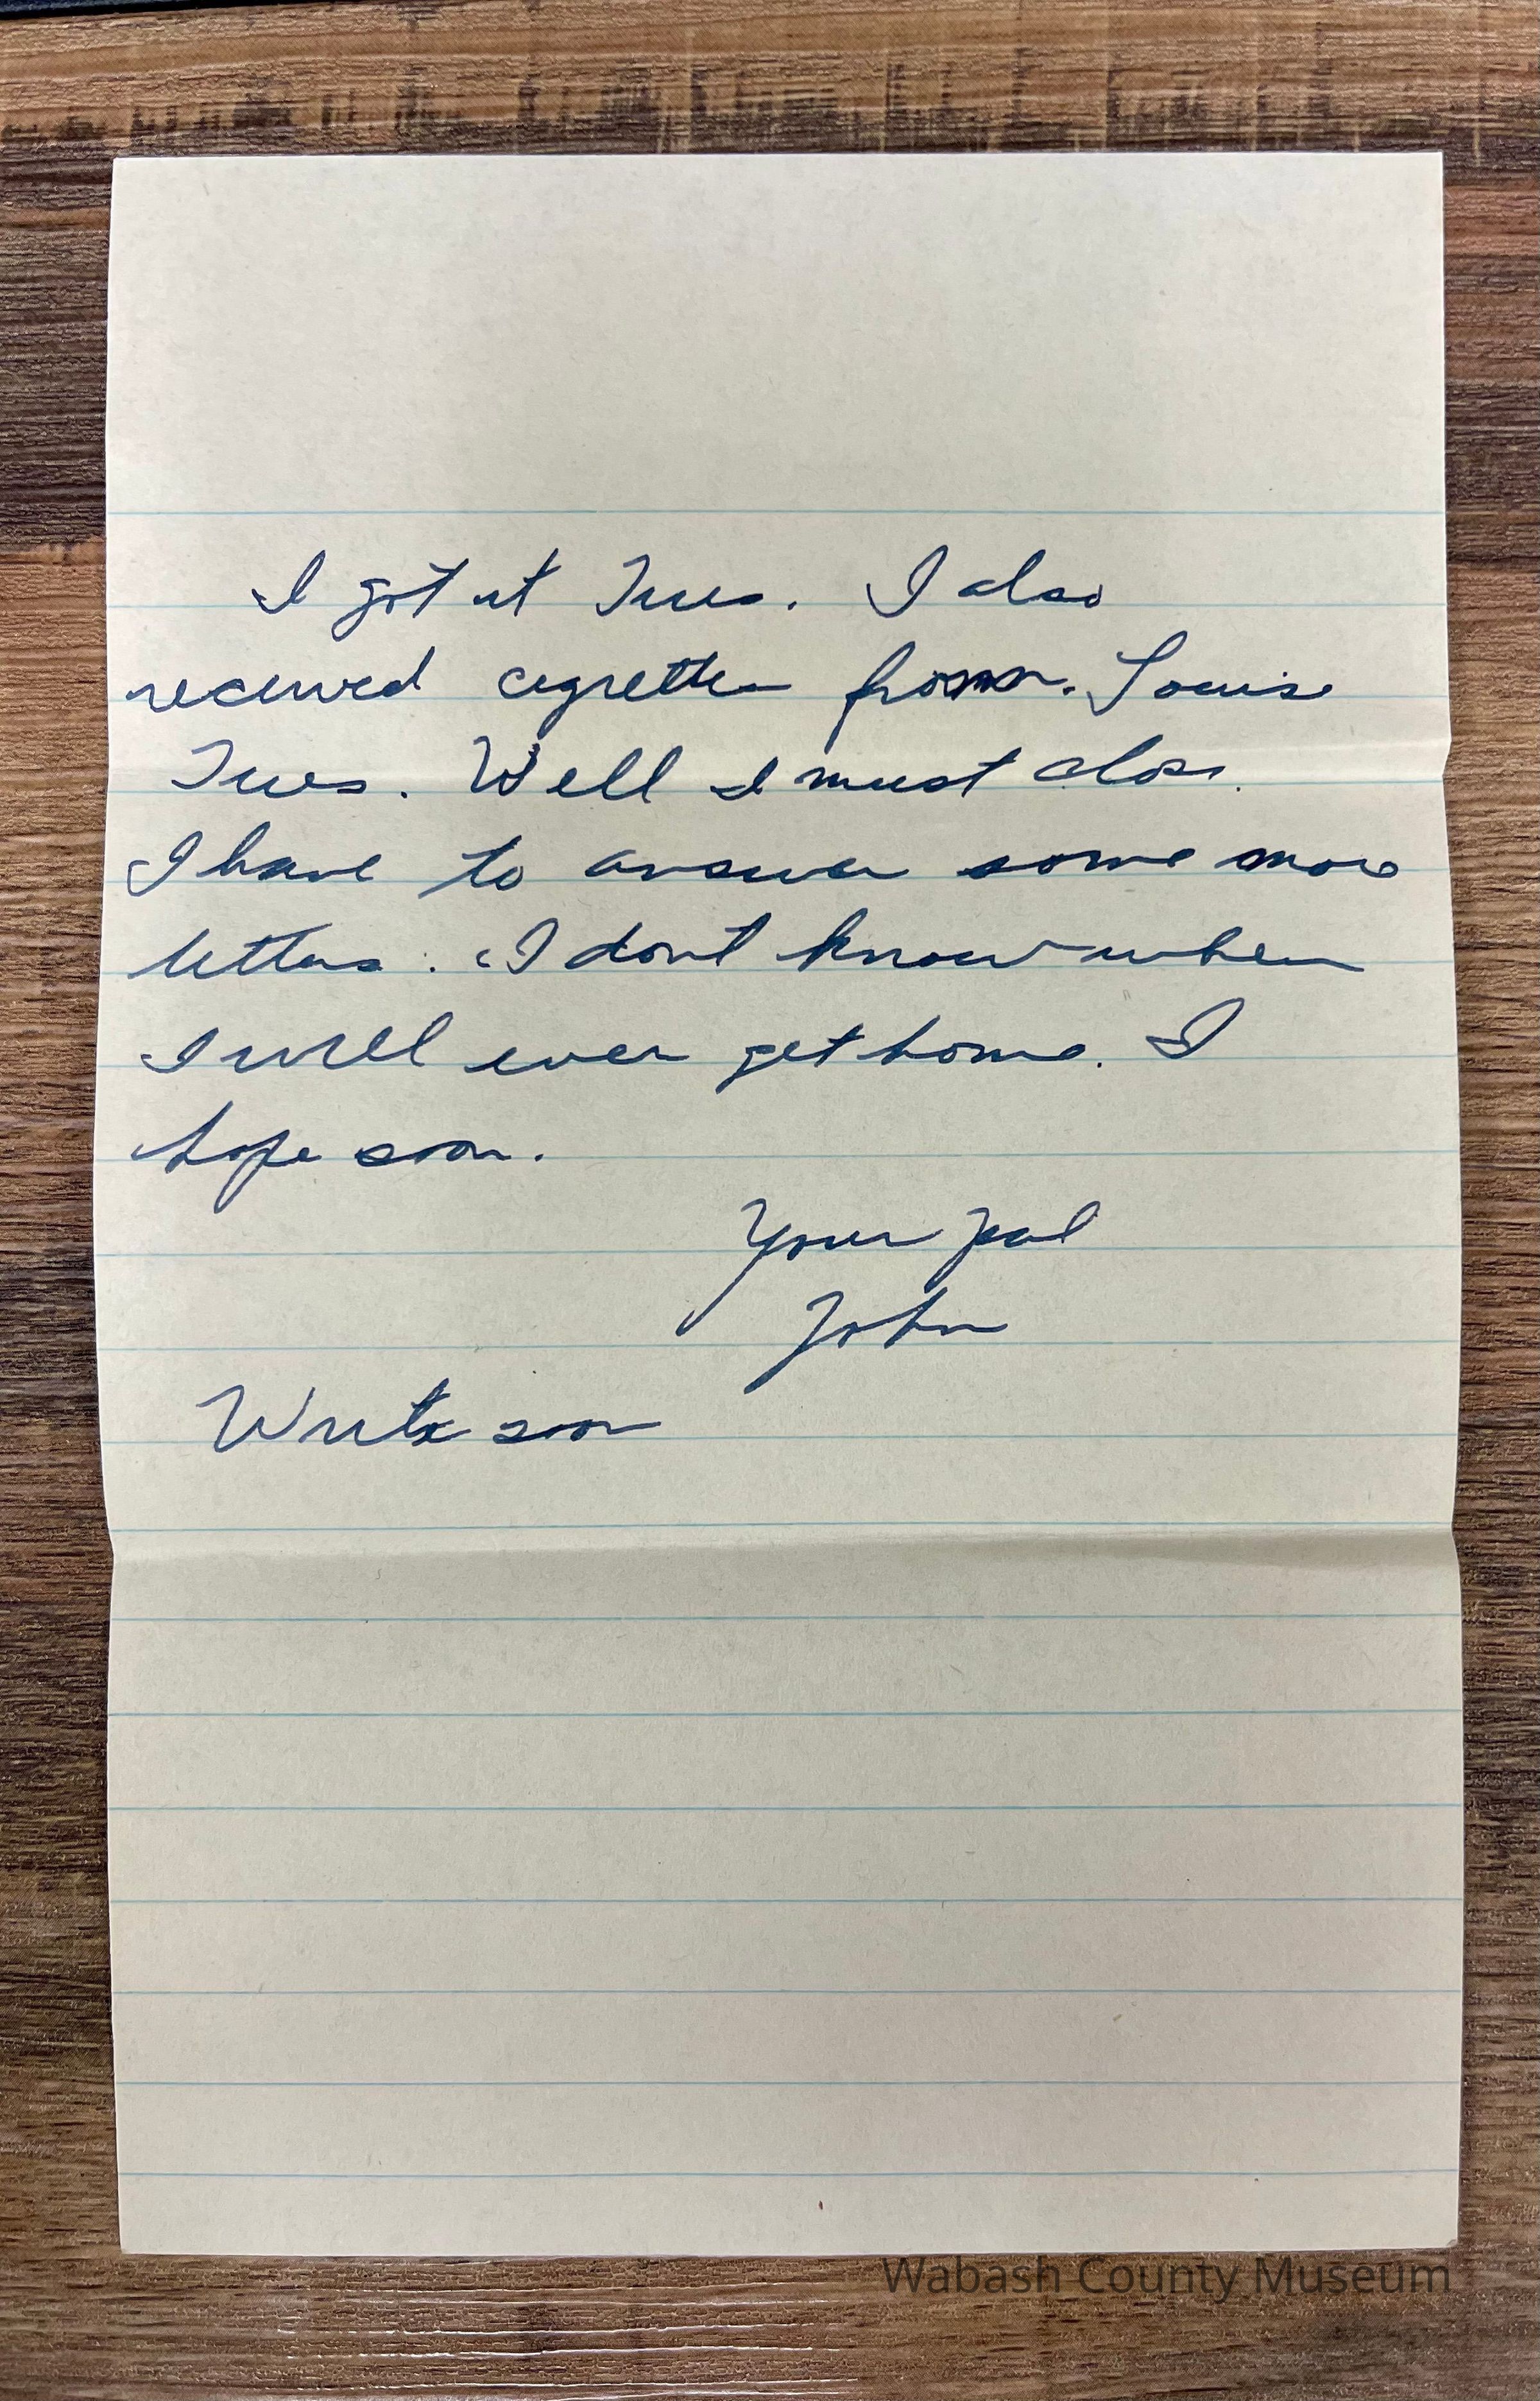 I got it Tues. I also
received cigrettes from. Louise
Tues. Well I must close.
I have to answer some more
letters. I dont know when
I will ever get home. I
hope soon.
Your pal
John
Write soon
Wabash County Museum